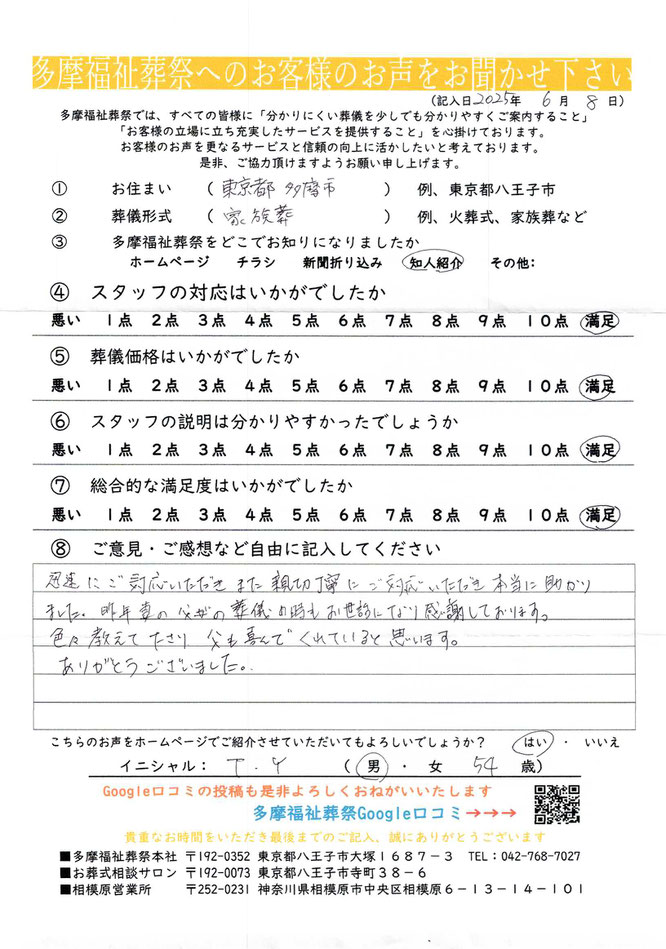 多摩福祉葬祭へのお客様のお声をお聞かせ下さい
(記入日2025年 6月 8日)
多摩福祉葬祭では、すべての皆様に「分かりにくい葬儀を少しでも分かりやすくご案内すること」
「お客様の立場に立ち充実したサービスを提供すること」を心掛けております。
お客様のお声を更なるサービスと信頼の向上に活かしたいと考えております。
是非、ご協力頂けますようお願い申し上げます。
① お住まい ( 東京都 多摩市 ) 例、東京都八王子市
② 葬儀形式 ( 家族葬 ) 例、火葬式、家族葬など
③ 多摩福祉葬祭をどこでお知りになりましたか
ホームページ チラシ 新聞折り込み 知人紹介 その他:
④ スタッフの対応はいかがでしたか
悪い 1点 2点 3点 4点 5点 6点 7点 8点 9点 10点 満足
⑤ 葬儀価格はいかがでしたか
悪い 1点 2点 3点 4点 5点 6点 7点 8点 9点 10点 満足
⑥ スタッフの説明は分かりやすかったでしょうか
悪い 1点 2点 3点 4点 5点 6点 7点 8点 9点 10点 満足
⑦ 総合的な満足度はいかがでしたか
悪い 1点 2点 3点 4点 5点 6点 7点 8点 9点 10点 満足
⑧ ご意見・ご感想など自由に記入してください
迅速にご対応いただきまた親切丁寧にご対応いただき本当に助かり
ました。昨年妻の父母の葬儀の時もお世話になり感謝しております。
色々教えて下さり 父も喜んでくれていると思います。
ありがとうございました。
こちらのお声をホームページでご紹介させていただいてもよろしいでしょうか？ はい ・ いいえ
イニシャル： T.Y ( 男 ・ 女 54 歳)
Google口コミの投稿も是非よろしくおねがいいたします
多摩福祉葬祭Google口コミ→→→
貴重なお時間をいただき最後までのご記入。誠にありがとうございます
■多摩福祉葬祭本社 〒192-0352 東京都八王子市大塚１６８７－３ TEL：042-768-7027
■お葬式相談サロン 〒192-0073 東京都八王子市寺町３８－６
■相模原営業所 〒252-0231 神奈川県相模原市中央区相模原６－１３－１４－１０１